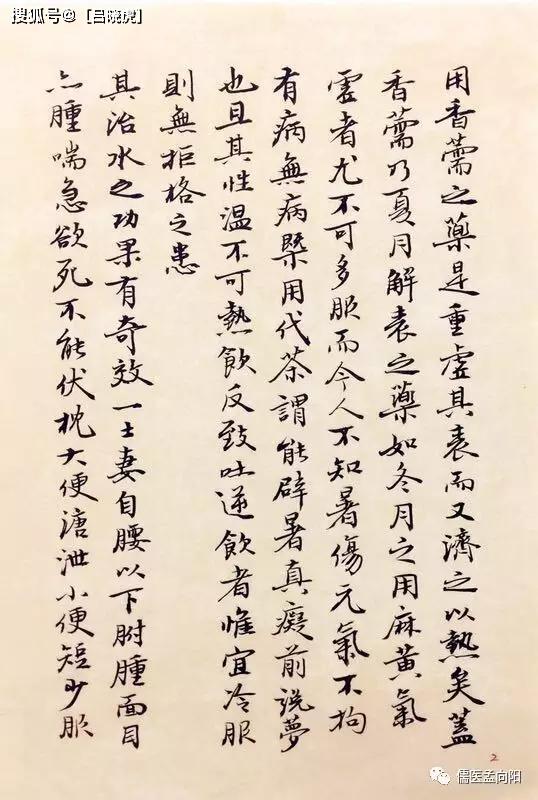 搜狐号@【吕晓虎】
用香薷之藥是重虛其表而又濟之以熱矣蓋
香薷乃夏月解表之藥如冬月之用麻黃氣
虛者尤不可多服而今人不知暑傷元氣不拘
有病無病槩用代茶謂能辟暑真癡前說夢
也且其性温不可熱飲反致吐逆飲者惟宜冷服
則無拒格之患
其治水之功果有奇效一士妻自腰以下胕腫面目
亦腫喘急欲死不能伏枕大便溏泄小便短少服
2
儒医孟向阳